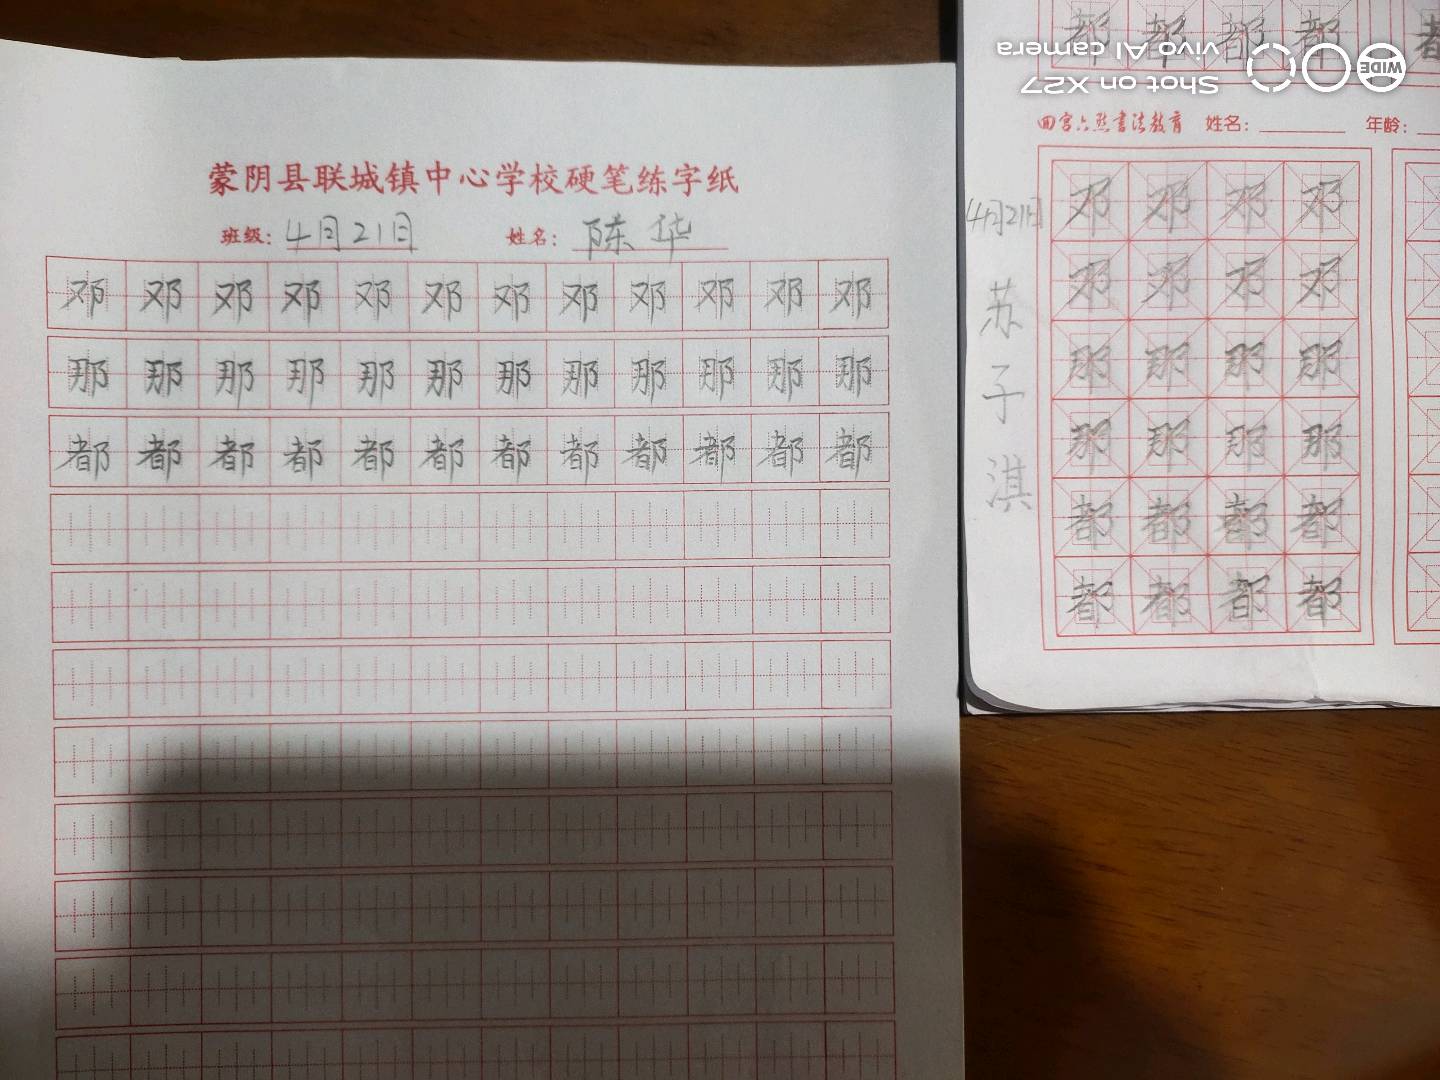 蒙阴县联城镇中心学校硬笔练字纸
班级：4月21日 姓名：陈华
邓邓邓邓邓邓邓邓邓邓邓邓
那那那那那那那那那那那那
都都都都都都都都都都都都
都都都都都
Shot on X27
vivo AI camera
WIDE
回宫六点书法教育 姓名： 年龄：
4月21日
苏子淇
邓邓邓邓
邓邓邓邓
那那那那
那那那那
都都都都
都都都都